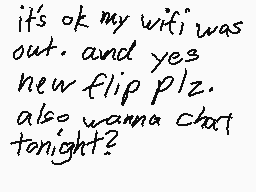 it's ok my wifi was
out. and yes
new flip plz.
also wanna chat
tonight?